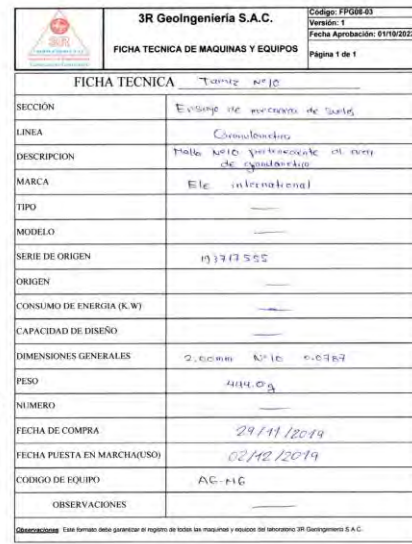 3R GeoIngeniería S.A.C.
FICHA TECNICA DE MAQUINAS Y EQUIPOS
Código: FPG08-03
Versión: 1
Fecha Aprobación: 01/10/2022
Página 1 de 1
3R
FICHA TECNICA Tamiz Nº10
SECCIÓN Ensayo de mecanica de suelos
LINEA Granulometria
DESCRIPCION Malla Nº10 perteneciente al area
de granulometria
MARCA Ele international
TIPO —
MODELO —
SERIE DE ORIGEN
ORIGEN —
CONSUMO DE ENERGIA (K.W) —
CAPACIDAD DE DISEÑO —
DIMENSIONES GENERALES 2.00mm Nº10 0.0787
PESO 444.0g
NUMERO —
FECHA DE COMPRA 29/11/2019
FECHA PUESTA EN MARCHA(USO) 02/12/2019
CODIGO DE EQUIPO AG-MG
OBSERVACIONES —
Observaciones: Este formato debe garantizar el registro de todas las maquinas y equipos del laboratorio 3R Geoingenieria S.A.C.